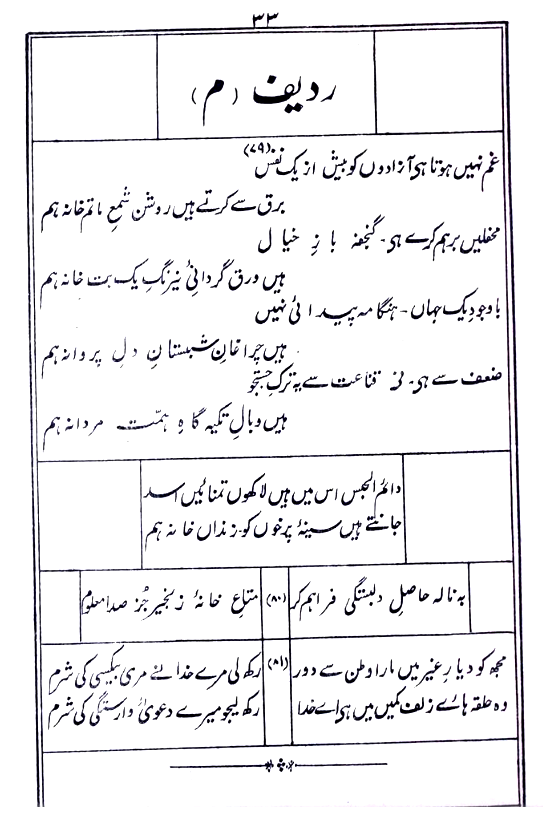 ۳۳
ردیف (م)
(۷۹)
غم نہیں ہوتا ہی آزادوں کو بیش از یک نفس
برق سے کرتے ہیں روشن شمعِ ماتم خانہ ہم
محفلیں برہم کرے ہی۔ گنجفہ بازِ خیال
ہیں ورق گردانیِ نیرنگِ یک بت خانہ ہم
باوجودِ یک جہاں۔ ہنگامہ پیدائی نہیں
ہیں چراغانِ شبستانِ دلِ پروانہ ہم
ضعف سے ہی۔ نی قناعت سے یہ ترکِ جستجو
ہیں وبالِ تکیہ گاہِ ہمّتِ مردانہ ہم
دائم الحبس اس میں ہیں لاکھوں تمنائیں اسد
جانتے ہیں سینۂ پرخوں کو زنداں خانہ ہم
بہ نالہ حاصلِ دلبستگی فراہم کر (۸۰) متاعِ خانۂ زنجیر جُز صدا معلوم
مجھ کو دیارِ غیر میں مارا وطن سے دور (۸۱) رکھ لی مرے خدا نے مری بیکسی کی شرم
وہ حلقہ ہائے زلف کمیں میں ہی اے خدا رکھ لیجو میرے دعویٔ وارستگی کی شرم